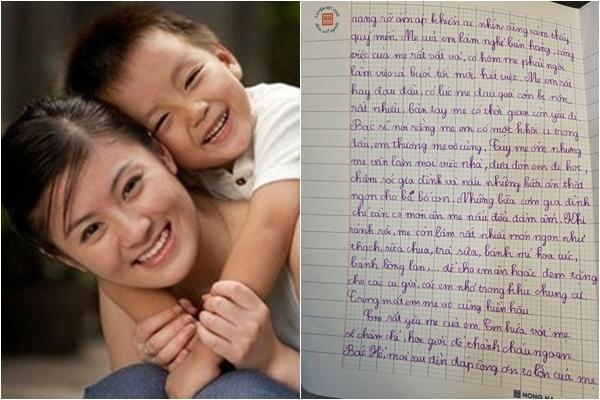 LUYỆN NÉT CHỮ
rạng rỡ ấm áp khiến ai nhìn cũng cảm thấy
quý mến. Mẹ của em làm nghề bán hàng, công
việc của mẹ rất vất vả, có hôm mẹ phải ngồi
làm việc cả buổi tối mới hết việc. Mẹ em rất
hay đau đầu, có lúc mẹ đau quá còn bị nôn
rất nhiều, bàn tay mẹ có thời gian còn yếu đi.
Bác sĩ nói rằng mẹ em có một khối u trong
đầu, em thương mẹ vô cùng. Tuy mẹ ốm nhưng
mẹ vẫn làm mọi việc nhà, đưa đón em đi học,
chăm sóc gia đình và nấu những bữa ăn thật
ngon cho bà bố con. Những bữa cơm gia đình
chỉ cần có món ăn mẹ nấu đều đầm ấm. Khi
rảnh rỗi, mẹ còn làm rất nhiều món ngon như
thạch, sữa chua, trà sữa, bánh mì hoa cúc,
bánh bông lan,... để cho em ăn hoặc đem tặng
cho các cụ già, các em nhỏ trong khu chung cư.
Trong mắt em mẹ vô cùng hiền hậu.
Em rất yêu mẹ của em. Em hứa với mẹ
sẽ chăm chỉ, học giỏi để thành cháu ngoan
Bác Hồ, mai sau đền đáp công ơn to lớn của mẹ
HONG HA